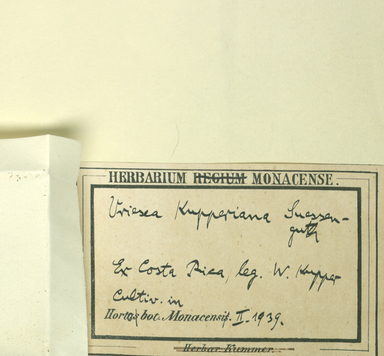 HERBARIUM REGIUM MONACENSE.
Vriesea Kupperiana Suessen-
guth
Ex Costa Rica, leg. W. Kupper
Cultiv. in
Hortus bot. Monacensis. II. 1939.
Herbar Kummer.